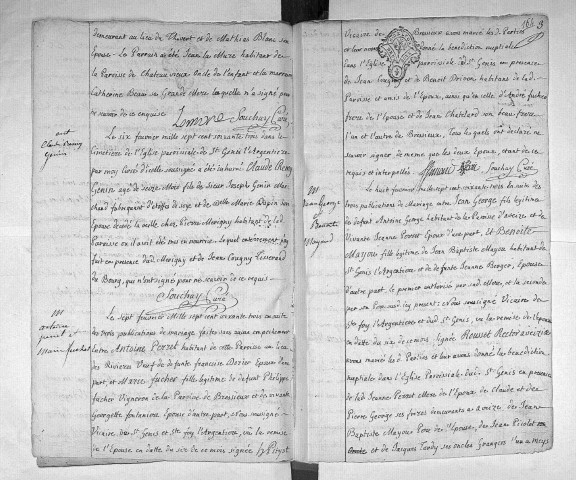 demeurant au lieu de Thivert et de Mathias Blanc son
Epouse. Le Parrain a été Jean Le Maire habitant de
la Paroisse de Chateauvieux oncle de l'enfant et la marraine
Catherine Beau sa Grande Mere laquelle n'a signé pour
ne savoir de ce enquise
Souchay Curé
ent
Claude Remy
Genin
Le six fevrier mille sept cent soixante trois dans le
Cimetière de l'Eglise parroissiale de St Genis l'Argentiere
par moy Curé d'icelle soussigné a été inhumé Claude Remy
Genin agé de seize Mois fils du Sieur Joseph Genin
chand fabriquant d'étoffes de soye et de Marie Dupin son
Epouse decedé la veille chez Pierre Merigny habitant de lad.
Paroisse ou il avait été mis en nourrice. Lequel enterrement fut
fait en presence dud. Merigny et de Jean Cougny
de Bourg, qui n'ont signé pour ne savoir de ce requis
Souchay Curé
M
antoine
perret et
Marie fucher
Le sept fevrier Mille sept cent soixante trois en suite
des trois publications de mariage faites sans aucun empechement
Entre Antoine Perret habitant de cette Paroisse au lieu
des Rivieres Veuf de defunte francoise Berier Epoux d'une
part, et Marie fucher fille legitime de defunt Philippe
fucher Vigneron de la Paroisse de Brussieux et de vivante
Georgette fontaniere Epouse d'autre part, et Nous soussigné
Vicaire de St Genis et Ste foy l'Argentiere, vû la remise
de l'Epouse en datte du six de ce mois signée
164
Vicaire de Brussieux avons marié les d. Parties
et leur avons donné la benediction nuptiale
dans l'Eglise parroissiale de St Genis en presence
de Jean Cougny et de Benoit Drivon habitans de lad.
Paroisse et amis de l'Epoux, ainsi qu'en celle d'André fucher
frere de l'epouse et de Jean Chatelard son beau frere
l'un et l'autre de Brussieux, Tous lesquels ont declaré ne
savoir signer de meme que les deux Epoux, etant de ce
requis et interpellés.
Souchay Curé
M
Jean George
Benoite
Mayoud
Le huit fevrier Mille sept cent soixante trois en suite des
trois publications de Mariage entre Jean George fils legitime
de defunt Antoine George habitant de la Paroisse d'aveize et de
Vivante Jeanne Perret Epoux d'une part, Et Benoite
Mayou fille legitime de Jean Baptiste Mayou habitant de
St Genis l'Argentiere et de defunte Jeanne Berger, Epouse
d'autre part. le premier autorisé par sad. Mere, et la seconde
par son Pere icy present; et Nous soussigné Vicaire de
Ste foy l'Argentiere et dud. St Genis, vu la remise de l'epoux
en datte du six de ce mois signée Rousset Rector aveizia
avons marié les d. Parties et leur avons donné la benediction
nuptiale dans l'Eglise Parroissiale dud. St Genis en presence
de lad. Jeanne Perret Mere de l'Epoux de Claude et de
Pierre George ses freres demeurants a aveize, de Jean
Baptiste Mayoux Pere de l'Epouse, de Jean Picolet son
et de Jacques Tardy ses oncles